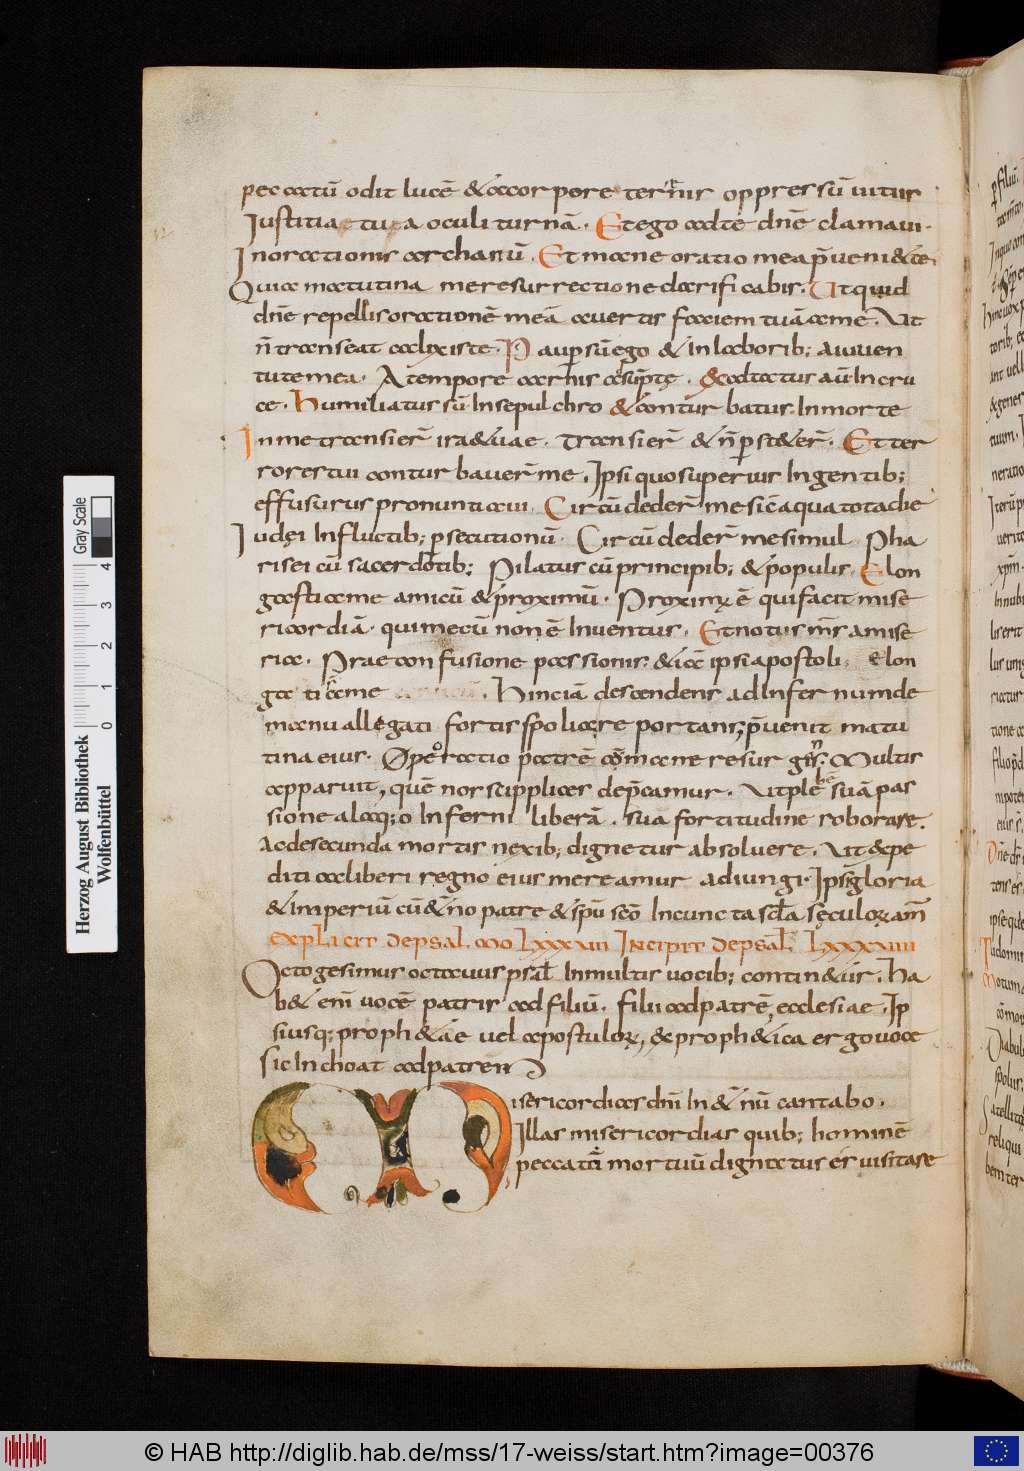 peccatū odit lucē & a corpore terrenis oppressū uitiis
Iustitiae tuae oculi turnā. Et ego ad te dn̄e clamaui.
In orationis archanū. Et mane oratio mea p̄ueni& te.
Quia matutina me resurrectione clarificabis. Ut quid
dn̄e repellis orationē meā auertis faciem tuā a me. Ut
n̄ transeat calix iste. Paup sū ego & in laborib; a iuuen
tute mea. A tempore carnis assūptę. & adtactus aū In cru
ce. humiliatus sū In sepulchro & conturbatus. In morte
In me transier̄ irae tuae. transier̄ & n̄ p̱st&er̄. Et ter
rores tui conturbauer̄ me. Ipsi quos uperius In gentib;
effusurus pronuntiaui. Circūdeder̄ me sic̄ aqua tota die
Iudęi In fluctib; p̱secutionū. Circūdeder̄ me simul Pha
risei cū sacerdotib; Pilatus cū principib; & populis. Elon
gasti a me amicū & proximū. Proximus ē qui facit mise
ricordiā. qui mecū non ē Inuentus. Et notus m̄s a mise
ria. Prae confusione passionis. & iā ipsi apostoli. elon
gati a me. Hinc iā descendens ad Infernum de
manu allegati fortis spoliare portans, p̄uenit matu
tina eius. Operatio patrē com̄mane resurgens. Multis
apparuit, quē nos supplices dep̄camur. Ut plebē suā pas
sione aloq;o Inferni liberā. sua fortitudine roborare.
Ac de secunda mortis nexib; dignetur absoluere. Ut expe
diti ac liberi regno eius mereamur adiungi. Ipsi gloria
& imperiū cū &ērno patre & sp̄u sc̄o In cuncta sc̄la sęculorū am̄
Explicit de psalmo LXXXVII Incipit de psal̄. LXXXVIII
Octogesimus octauus psal̄ In multis uocib; contin&ur. Ha
b& enī uocē patris ad filiū. filii ad patrē, ecclesiae. Ip
siusq; proph&ae uel apostulorū, & proph&ica ergo uoce
sic Inchoat ad patrem
Misericordias dn̄i In &ērnū cantabo.
Illas misericordias quib; hominē
peccati mortuū dignatus es uisitare
Gray Scale
4
3
2
1
0
Herzog August Bibliothek
Wolfenbüttel
© HAB http://diglib.hab.de/mss/17-weiss/start.htm?image=00376